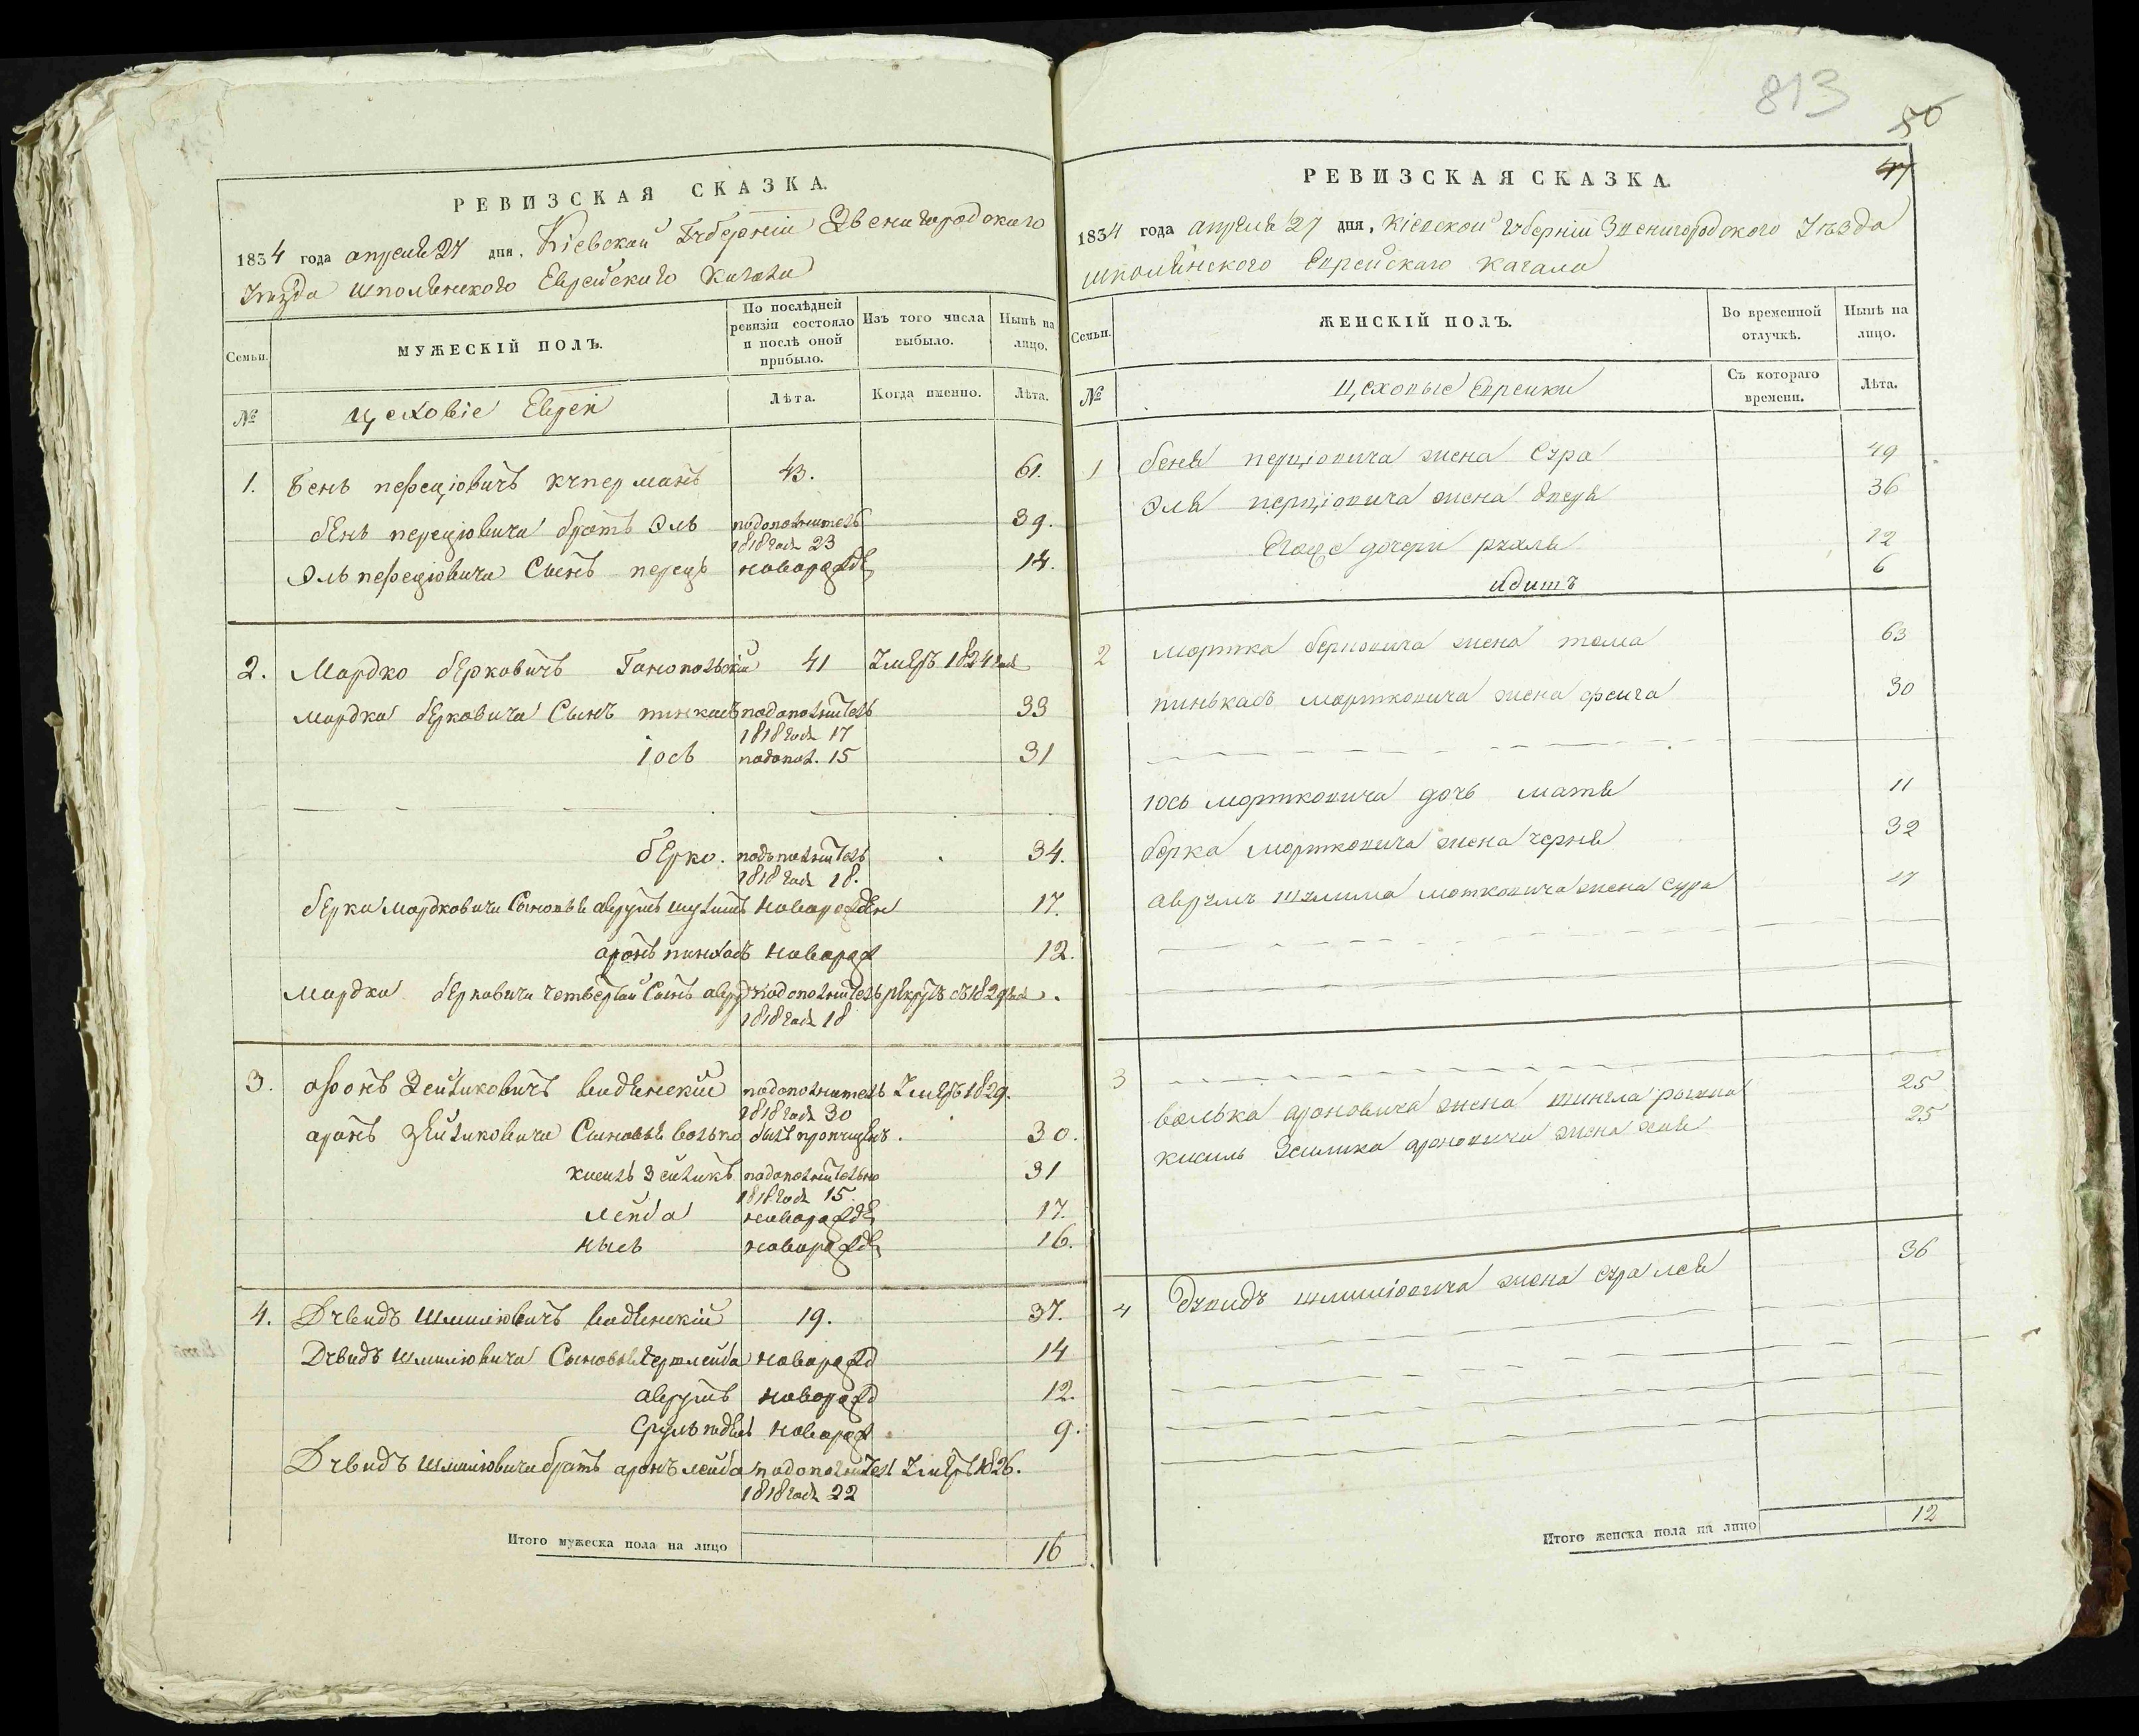 РЕВИЗСКАЯ СКАЗКА.
1834 года апреля 27 дня, Кіевской Губерніи Звенигородского
Уѣзда шполянского Еврейскаго Кагала
Семьи.
МУЖЕСКІЙ ПОЛЪ.
По послѣдней ревизіи состояло и послѣ оной прибыло.
Изъ того числа выбыло.
Нынѣ на лицо.
№
цеховіе Евреи
Лѣта.
Когда именно.
Лѣта.
1. бень перецiовичъ купермань 43. 61.
бень перецiовича братъ Эль
подополнитель 1818 года 23 39.
Эль перецiовича Сынъ перецъ новорожде 14.
2. Мардко берковичъ Ганопольскій 41 Умеръ 1824 года
мардка берковича Сынъ пинкасъ подополнитель
1818 года 17 33
іось подопол. 15 31
берко. подополнитель
1818 года 18. 34.
берка мардковича Сыновья аврумъ шулимъ новорожден 17.
аронъ пинхасъ новорож 12.
мардка берковича четвертый Сынъ аврум подополнитель рекрутъ съ 1829 года.
1818 года 18
3. аронъ Зейликовичъ видѣнскій подополнитель Умеръ 1829.
1818 года 30
аронъ зейликовича Сыновья волько былъ пропущенъ. 30.
кисиль зейликъ подополнительно 31
1818 года 15.
лейба новорожде 17.
нысь новорожде 16.
4. Дувидъ Шмилiовичъ видѣнскій 19. 37.
Дувидъ шмилiовича Сыновья гершлейба новорожд 14
аврумъ новорожд 12.
Сруль новорож 9.
Дувидъ шмилiовича братъ аронъ лейба подополнител Умеръ 1826.
1818 года 22
Итого мужеска пола на лицо 16
813
50
47
РЕВИЗСКАЯ СКАЗКА.
1834 года апреля 27 дня, Кіевской Губерніи Звенигородского Уѣзда
шполянского Еврейскаго Кагала
Семьи.
ЖЕНСКІЙ ПОЛЪ.
Во временной отлучкѣ.
Нынѣ на лицо.
№
Цеховые Еврейки
Съ котораго времени.
Лѣта.
1 беня перціовича жена Сура 49
Эля перціовича жена двейра 36
Егоже дочери рухля 12
идитъ 6
2 мортка берковича жена тома 63
пинькасъ мортковича жена фейга 30
іось мортковича дочь матя 11
берка мортковича жена черня 32
аврумъ шулима мотковича жена сура 17
3
волька ароновича жена шингла 25
кисиль Зеилика ароновича жена хая 25
4 Дувидъ шмиліовича жена сура лея 36
Итого женска пола на лицо 12